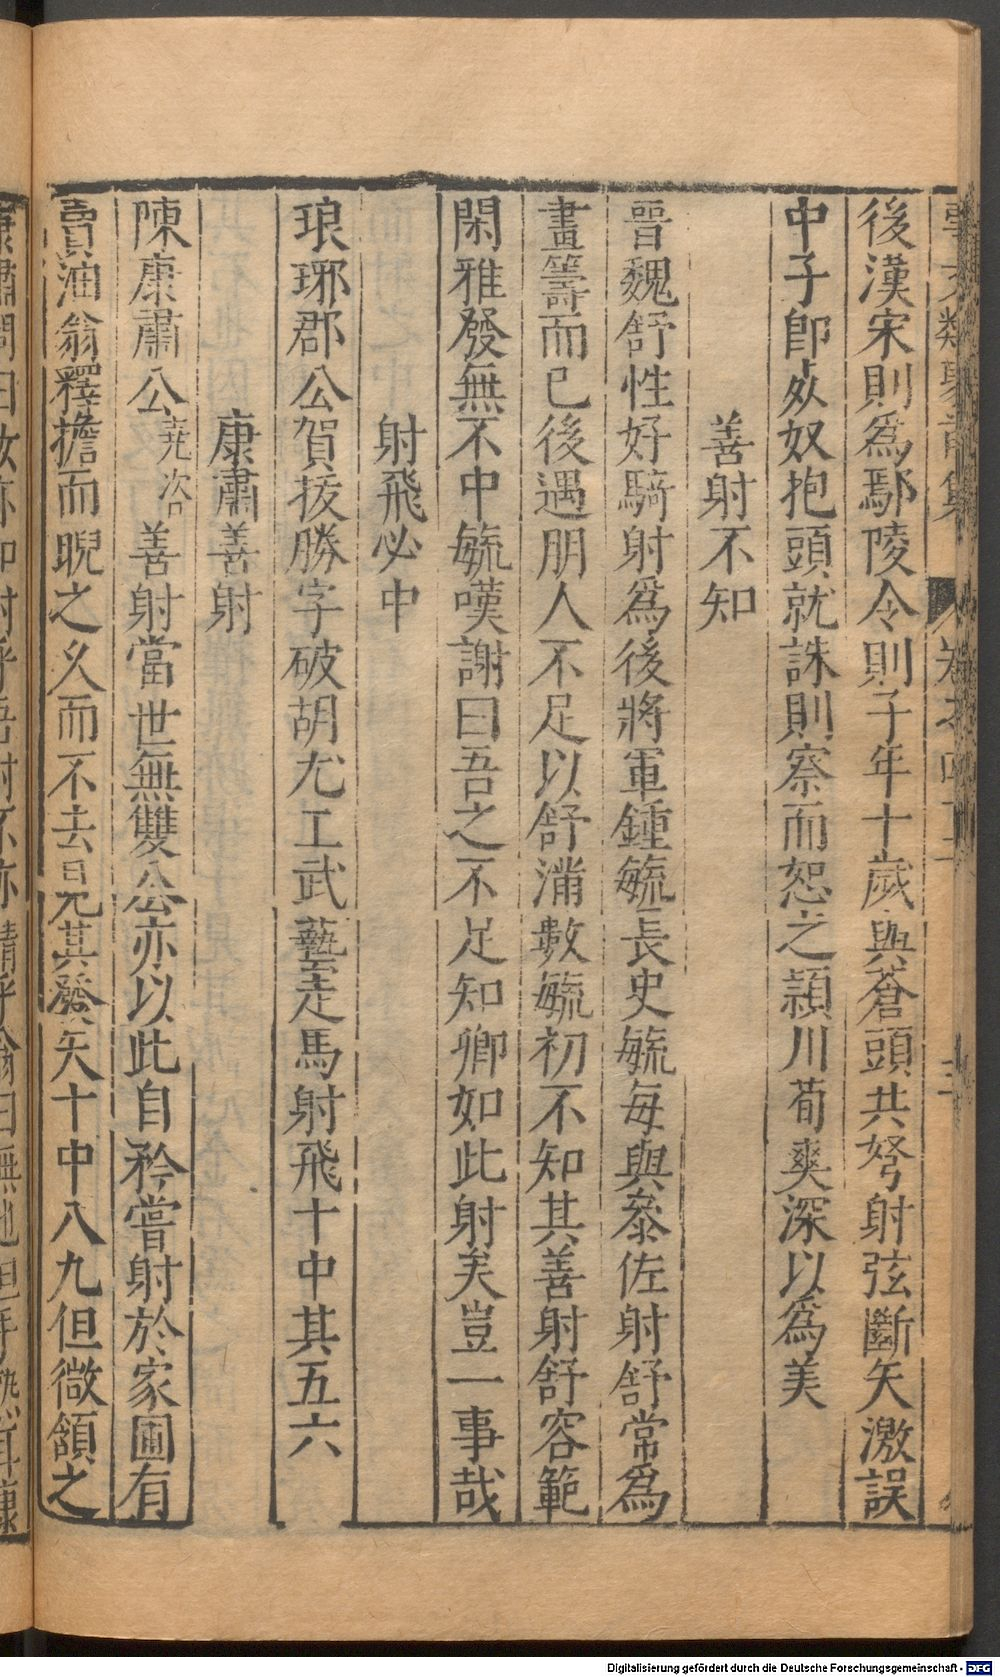 後漢宋則爲鄢陵令則子年十歲與蒼頭共弩射弦斷矢激誤
中子卽死奴抱頭就誅則察而恕之潁川荀爽深以爲美
善射不知
晉魏舒性好騎射爲後將軍鍾毓長史毓每與叅佐射舒常爲
畫籌而已後遇朋人不足以舒滿數毓初不知其善射舒容範
閑雅發無不中毓嘆謝曰吾之不足知卿如此射矣豈一事哉
射飛必中
琅琊郡公賀拔勝字破胡尤工武藝走馬射飛十中其五六
康肅善射
陳康肅公堯咨善射當世無雙公亦以此自矜嘗射於家圃有
賣油翁釋擔而睨之久而不去見其發矢十中八九但微頷之
康肅問曰汝亦知射乎吾射不亦精乎翁曰無他但手熟耳康
Digitalisierung gefördert durch die Deutsche Forschungsgemeinschaft - DFG